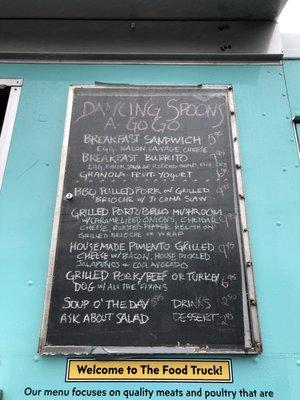 DANCING SPOONS
A GO GO
BREAKFAST SANDWICH
EGG, BACON, SAUSAGE, CHEESE
BREAKFAST BURRITO
EGG, BACON, SAUSAGE
GRANOLA FRUIT YOGURT
BBQ PULLED PORK ON GRILLED
BRIOCHE W/ JICAMA SLAW
GRILLED PORTOBELLO MUSHROOM
W/CARAMELIZED ONIONS, CHEDDAR
CHEESE, ROASTED PEPPER RELISH ON
GRILLED BRIOCHE OR WRAP
HOUSEMADE PIMENTO GRILLED
CHEESE W/BACON, HOUSE PICKLED
JALAPENOS & COOL AVOCADO
GRILLED PORK/BEEF OR TURKEY
DOG W/ALL THE FIXINS
SOUP O' THE DAY DRINKS
ASK ABOUT SALAD DESSERT
Welcome to The Food Truck!
Our menu focuses on quality meats and poultry that are